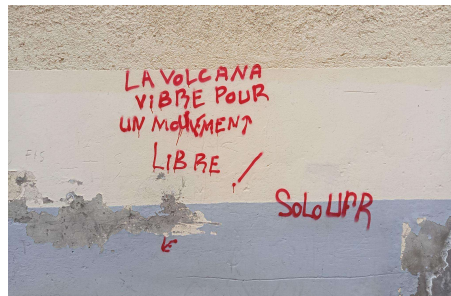 LA VOLCANA
VIBRE POUR
UN MOUVEMENT
LIBRE !
SOLO